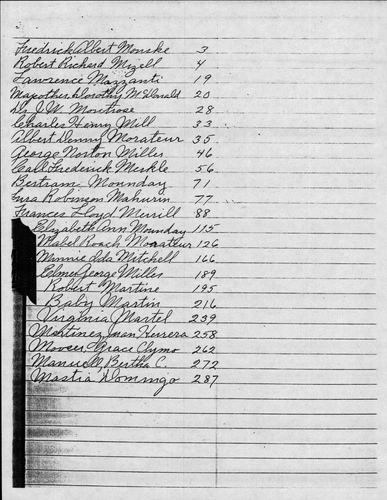 Fredrick Albert Monske 3
Robert Richard Mizell 4
Lawrence Mazzanti 19
Mapother, Dorothy McDonald 20
Dr. J. W. Montrose 28
Charles Henry Mill 33
Albert Denny Morateur 35
George Norton Miller 46
Carl Frederick Merkle 56
Bertram Mounday 71
Robinson Mahurin 77
Frances Lloyd Merrill 88
Elizabeth Ann Mounday 115
Mabel Roach Morateur 126
Minnie Ida Mitchell 166
Elmer George Miller 189
Robert Martine 195
Baby Martin 216
Virginia Martel 239
Martinez, Juan Herera 258
Moover, Grace Clymo 262
Manuell, Bertha C. 272
Mastia, Domingo 287